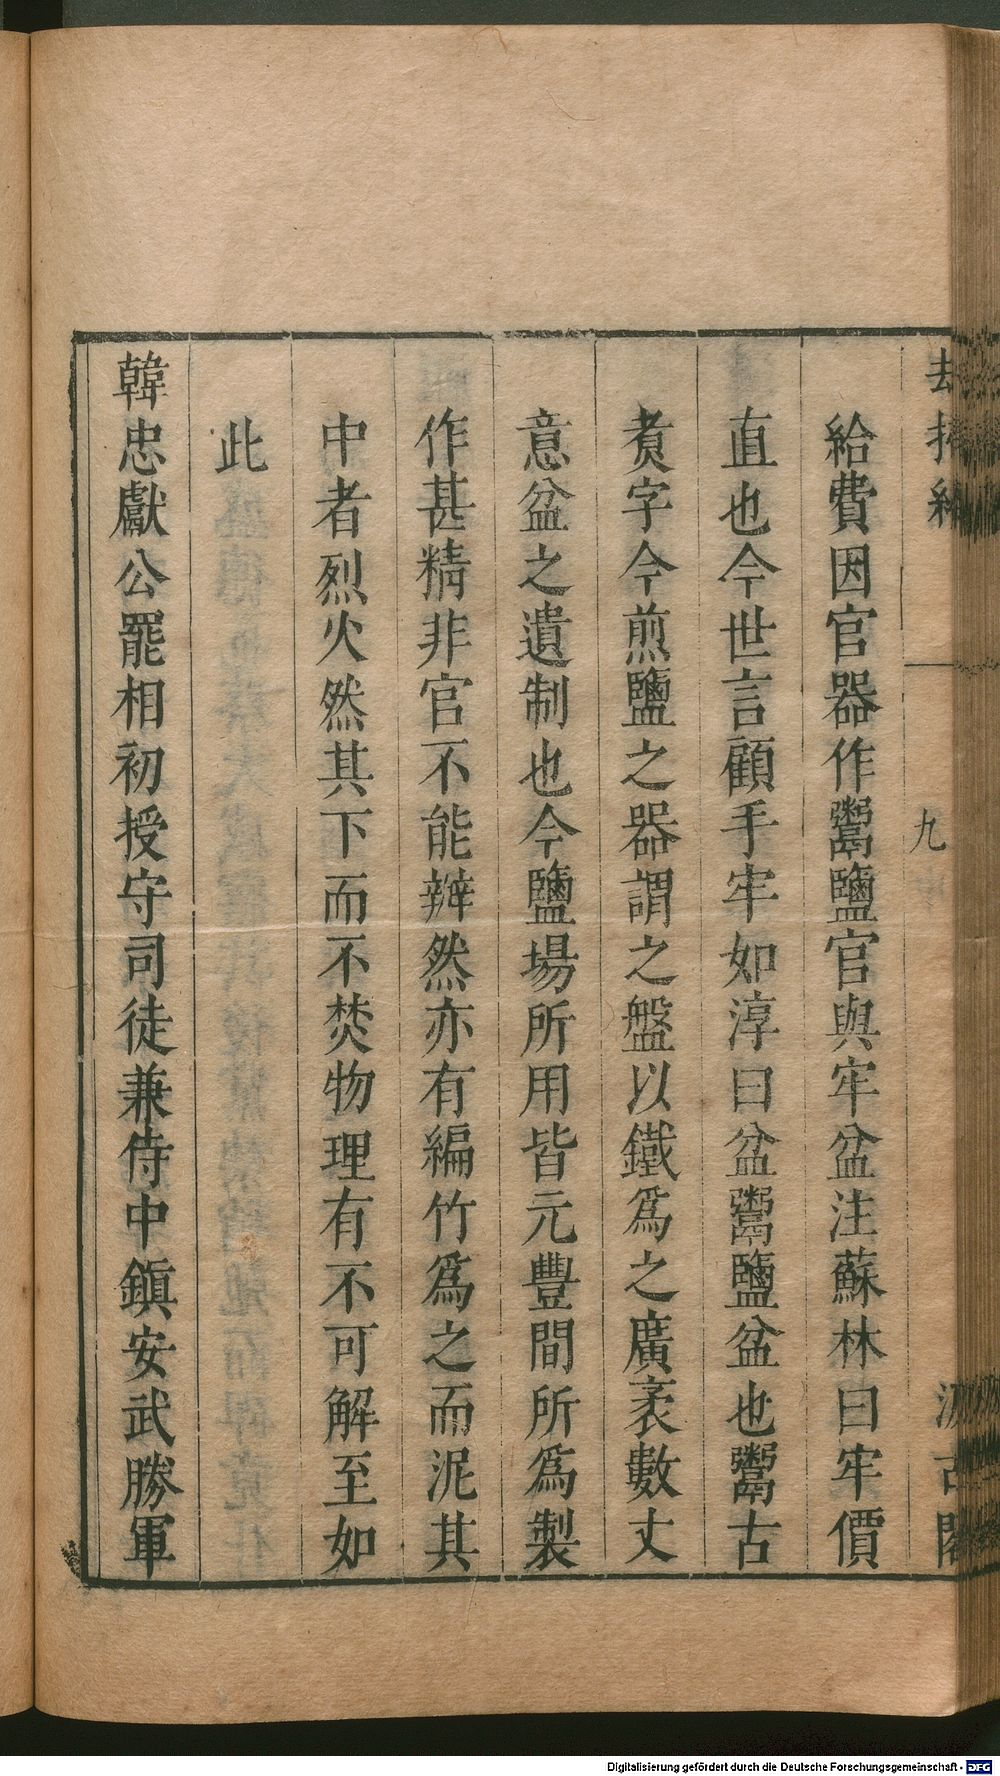 去掃編
九
汲古閣
給費因官器作鬻鹽官與牢盆注蘇林曰牢價
直也今世言顧手牢如淳曰盆鬻鹽盆也鬻古
煑字今煎鹽之器謂之盤以鐵爲之廣袤數丈
意盆之遺制也今鹽場所用皆元豐間所爲製
作甚精非官不能辦然亦有編竹爲之而泥其
中者烈火然其下而不焚物理有不可解至如
此
韓忠獻公罷相初授守司徒兼侍中鎭安武勝軍
Digitalisierung gefördert durch die Deutsche Forschungsgemeinschaft - DFG